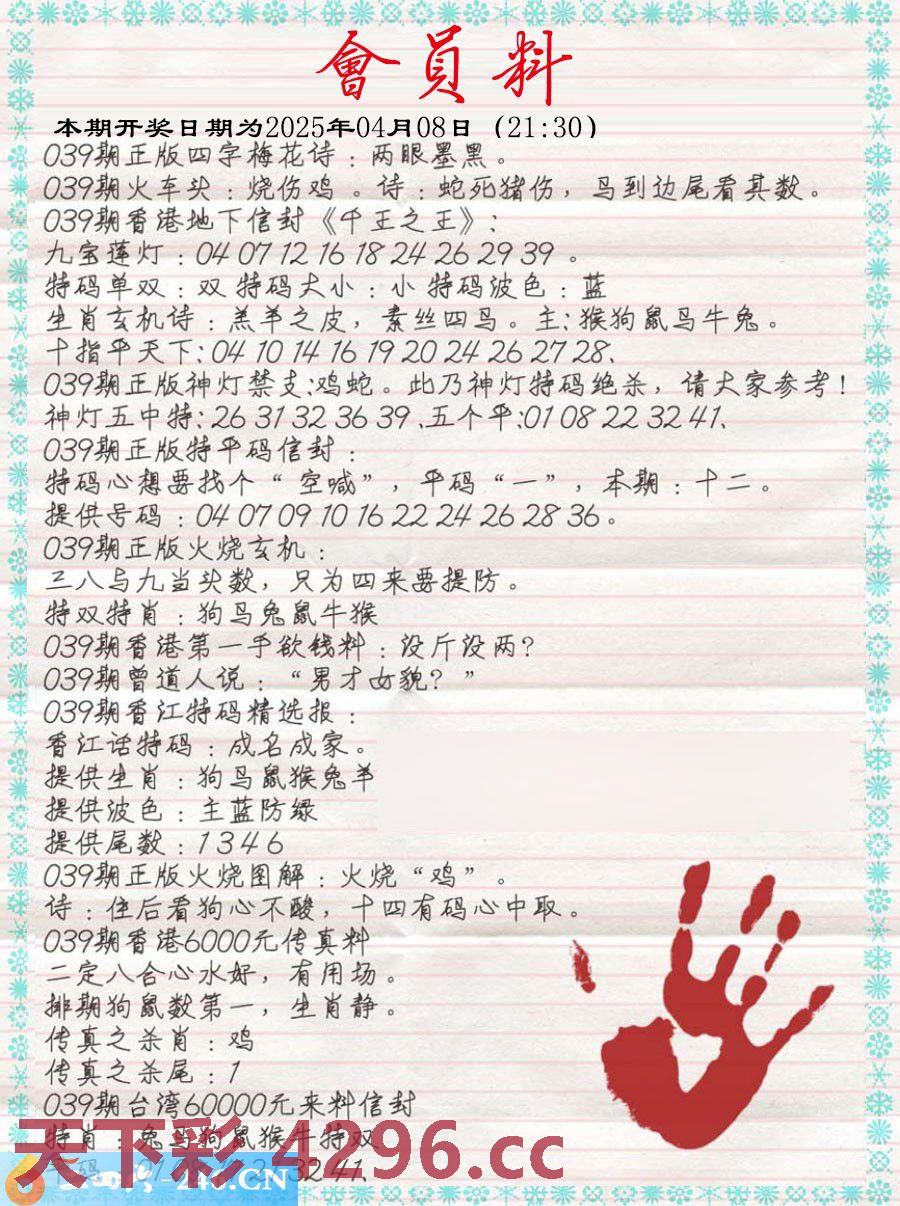 會員料
本期开奖日期为2025年04月08日（21:30）
039期正版四字梅花诗：两眼墨黑。
039期火车头：烧伤鸡 。诗：蛇死猪伤，马到边尾看其数。
039期香港地下信封《千王之王》：
九宝莲灯：04 07 12 16 18 24 26 29 39 。
特码单双：双 特码大小：小 特码波色：蓝
生肖玄机诗：羔羊之皮，素丝四马。主：猴狗鼠马牛兔。
十指平天下：04 10 14 16 19 20 24 26 27 28、
039期正版神灯禁支：鸡蛇。此乃神灯特码绝杀，请大家参考！
神灯五中特：26 31 32 36 39 、五个平：01 08 22 32 41、
039期正版特平码信封：
特码心想要找个“空喊”，平码“一”，本期：十二。
提供号码：04 07 09 10 16 22 24 26 28 36。
039期正版火烧玄机：
三八与九当头数，只为四来要提防。
特双特肖：狗马兔鼠牛猴
039期香港第一手欲钱料：没斤没两？
039期曾道人说：“男才女貌？”
039期香江特码精选报：
香江话特码：成名成家。
提供生肖：狗马鼠猴兔羊
提供波色：主蓝防绿
提供尾数：1 3 4 6
039期正版火烧图解：火烧“鸡”。
诗：住后看狗心不酸，十四有码心中取。
039期香港6000元传真料
二定八合心水好，有用场。
排期狗鼠数第一，生肖静。
传真之杀肖：鸡
传真之杀尾：1
039期台湾60000元来料信封
特肖：兔马狗鼠猴牛特双
天下彩 4296.cc
32 41、
-246.CN